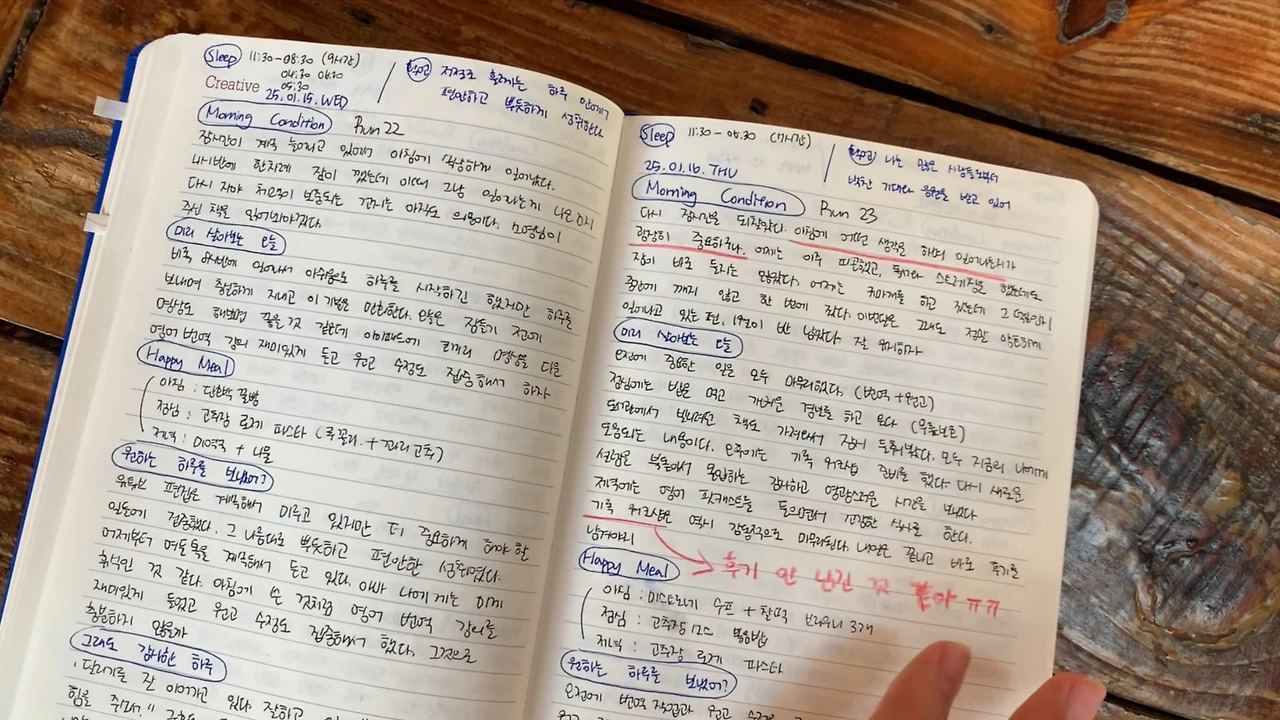 Sleep 11:30-08:30 (9시간)
04:30 06:30
05:30
확언 저절로 흘러가는 하루 안에서
편안하고 뿌듯하게 성취한다
Creative
25.01.15.WED
Morning Condition Run 22
잠시간이 계속 늘어지고 있어서 아침에 벌떡하게 일어났다.
네시반에 한차례 잠이 깼는데 이때 그냥 일어나는게 나은지
다시 자야 체력이 보충되는 건지는 아직도 의문이다.
주신 책을 읽어봐야겠다.
미리 살아보는 오늘
비록 일어나서 아쉬움으로 하루를 시작하긴 했지만 하루를
보내며 충분하게 지내고 이 기분을 만회한다. 오늘은 잠들기 전에
명상도 해보면 좋을 것 같은데 아이패드에 코끼리 명상을 다운
영어 번역 강의 재미있게 듣고 원고 수정도 집중해서 하자
Happy Meal
아침 : 단호박 꿀밤
점심 : 고추장 로제 파스타
저녁 : 미역국 + 나물
원하는 하루를 보냈어?
유튜브 편집은 계속해서 미루고 있지만 더 중요하게 해야 할
일들에 집중했다. 그 나름대로 뿌듯하고 편안한 성취였다.
어제부터 여둘톡을 계속해서 듣고 있다. 아마 나에게는 이게
휴식인 것 같다. 아침에 쓴 것처럼 영어 번역 강의를
재미있게 들었고 원고 수정도 집중해서 했다. 그것으로
충분하지 않을까
그래도 감사한 하루
달리기를 잘 이어가고 있다 잘하고
힘을 주다."
Sleep 11:30 - 05:30 (7시간)
확언 나는 많은 사람들로부터
벅찬 기대와 응원을 받고 있어
25.01.16.THU
Morning Condition Run 23
다시 잠시간을 되찾았다. 아침에 어떤 생각을 하며 일어나는지가
굉장히 중요하구나. 어제는 아주 피곤했고, 스트레칭을 했는데도
잠이 바로 들지는 않았다. 어제는 귀마개를 하고 잤는데
중간에 깨지 않고 한 번에 잤다. 이번달은 그래도 정말
일어나고 있는 편. 1월이 반 남았다. 잘 유지하자
미리 살아보는 오늘
오전에 중요한 일은 모두 마무리했다. (번역 + 원고)
점심에는 밥을 먹고 가벼운 경보를 하고 온다 (우체국)
도서관에서 빌려온 책도 가져와서 집에 들어왔다. 모두 지금의 나에게
도움되는 내용이다. 오후에는 기록 워크샵 준비를 했다. 다시 새로운
사람들 몰입하는 감사하고 영광스러운 시간을 보냈다
저녁에는 영어 팟캐스트를 들으면서 건강한 식사를 한다.
기록 워크샵은 역시 감동적으로 마무리된다. 내일은 끝나고 바로 후기를
남겨야지
후기 안 남긴 것 같아 ㅠㅠ
Happy Meal
아침 : 미네스트로네 수프 + 찰떡 브라우니 3개
점심 : 고추장 소스 볶음밥
저녁 : 고추장 로제 파스타
원하는 하루를 보냈어?
오전에 번역 작업과 원고 수정